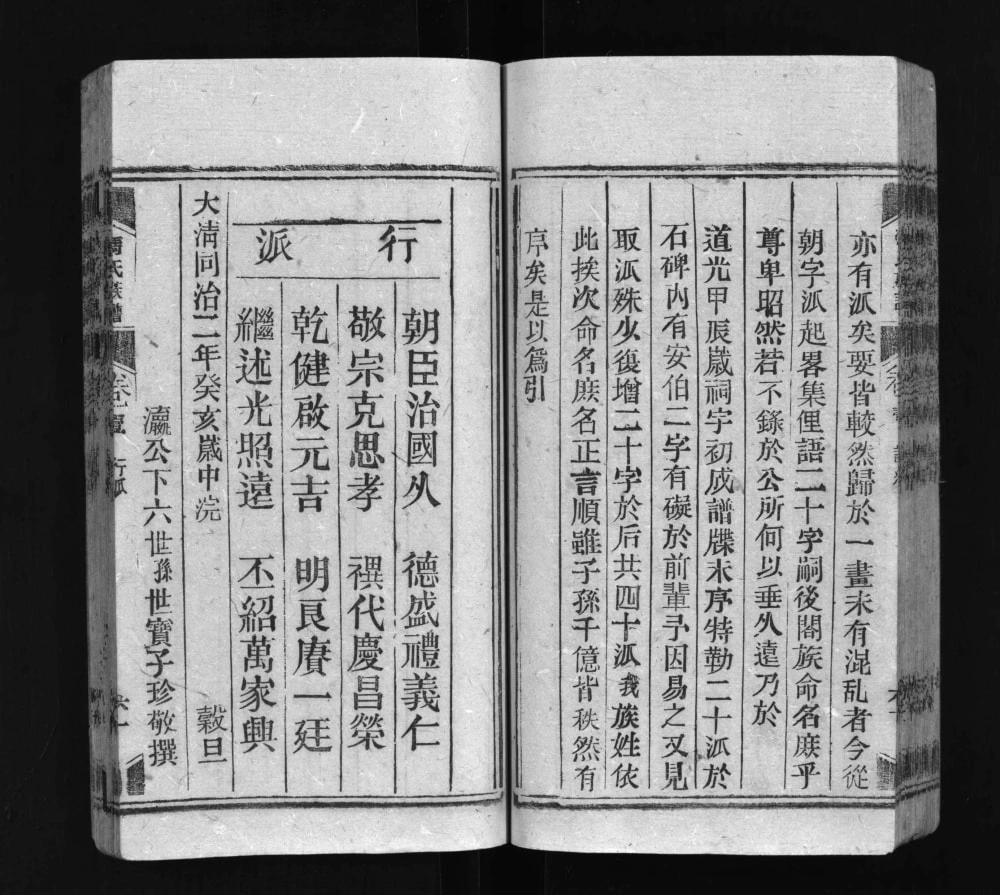 亦有派矣要皆較然歸於一畫未有混乱者今從
朝字派起畧集俚語二十字嗣後閤族命名庶乎
尊卑昭然若不錄於公所何以垂久遠乃於
道光甲辰歲祠宇初成譜牒未序特勒二十派於
石碑內有安伯二字有礙於前輩予因易之又見
取派殊少復增二十字於后共四十派我族姓依
此挨次命名庶名正言順雖子孫千億皆秩然有
序矣是以為引
行派
朝臣治國久 德盛禮義仁
敬宗克思孝 禩代慶昌榮
乾健啟元吉 明良賡一廷
繼述光照遠 丕紹萬家興
大清同治二年癸亥歲中浣 穀旦
瀛公下六世孫世寶子珍敬撰
氏族譜
卷壹 行派